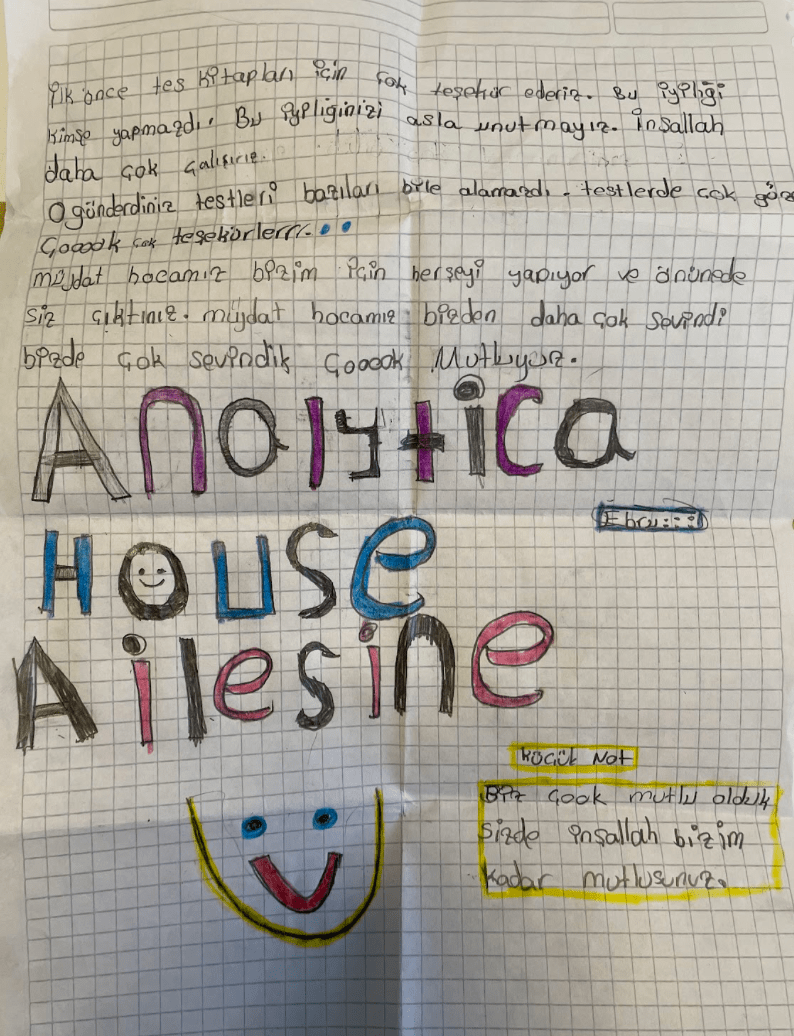 ilk önce tes kitapları için çok teşekür ederiz. Bu iyiliği
kimse yapmazdı. Bu iyiliginizi asla unutmayız. İnsallah
daha çok çalışırız.
O gönderdiniz testleri bazıları bile alamazdı. testlerde çok
Çooook çok teşekürlerrr..
müjdat hocamız bizim için herseyi yapıyor ve önünede
siz çıktınız. müjdat hocamız bizden daha çok sevindi
bizde çok sevindik Çooook Mutluyuz.
Analytica
Ebru::::
House
Ailesine
Küçük Not
Biz çook mutlu olduk
sizde inşallah bizim
kadar mutlusunuz.